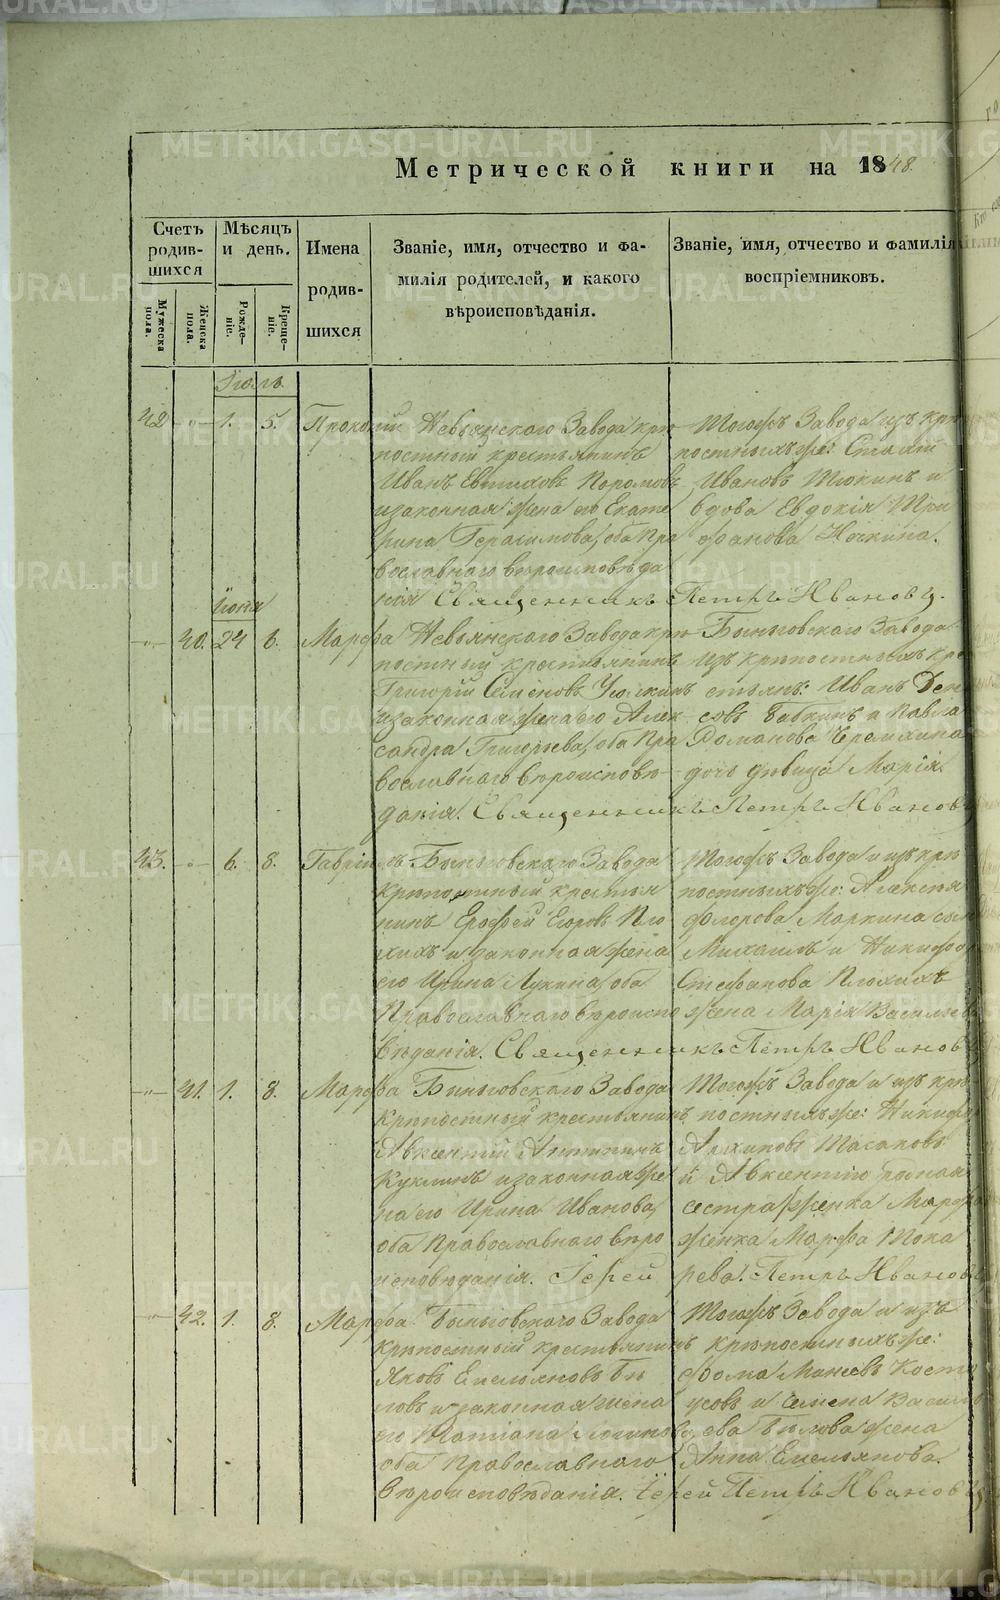 Метрической книги на 1848.
Счетъ родив- шихся
Мѣсяцъ и день.
Имена родив- шихся
Званіе, имя, отчество и фа-
милія родителей, и какого
вѣроисповѣданія.
Званіе, имя, отчество и фамилія
воспріемниковъ.
Мужеска пола.
Женска пола.
Рожде- ніе.
Креще- ніе.
Іюль
42 - " - 1. 5. Прокопій
Невьянскаго Завода крѣ
постный крестьянинъ
Иванъ Евтиховъ
и законная жена его Екате
рина Герасимова, оба Пра
вославнаго вѣроисповѣда
нія Священникъ Петръ Ивановъ.
Тогожъ Завода изъ крѣ
постныхъ же:
Ивановъ Тюкинъ и
вдова Евдокія Три
фанова
Іюня
- " - 40. 24 6. Марфа
Невьянскаго Завода крѣ
постный крестьянинъ
Григорій Семеновъ
и законная жена его Алек
сандра Григорьева, оба Пра
вославнаго вѣроисповѣ
данія. Священникъ Петръ Ивановъ
Быньговскаго Завода
изъ крѣпостныхъ кре
стьянъ: Иванъ Дени
совъ Бабкинъ и Павла
Романова
дочь дѣвица Марія.
43. - " - 6. 8. Гавріилъ
Быньговскаго Завода
крѣпостный крестья
нинъ Ерофей Егоровъ Пло
хихъ и законная жена
его Ирина Лукина, оба
Православнаго вѣроиспо
вѣданія. Священникъ Петръ Ивановъ
Тогожъ Завода и изъ крѣ
постныхъ же: Алексѣя
Флорова Маркина сынъ
Михаилъ и Никифора
Стефанова Плохихъ
жена Марія Васильева
- " - 41. 1. 8. Марфа
Быньговскаго Завода
крѣпостный крестьянинъ
Авксентій Антипинъ
Куклинъ и законная же
на его Ирина Иванова,
оба Православнаго вѣро
исповѣданія. Іерей Петръ Ивановъ
Тогожъ Завода и изъ крѣ
постныхъ же: Никифоръ
Архиповъ
и Авксентію родная
сестра
женка Марфа Тока
рева.
- " - 42. 1. 8. Марфа
Быньговскаго Завода
крѣпостный крестьянинъ
Яковъ Емельяновъ Бѣ
ловъ и законная жена
его Татіана Логинова,
оба Православнаго
вѣроисповѣданія. Іерей Петръ Ивановъ
Тогожъ Завода и изъ
крѣпостныхъ же:
Фома Манеевъ Кост
усовъ и Семена Василь
ева Бѣлова жена
Анна Емельянова.
METRIKI.GASO-URAL.RU